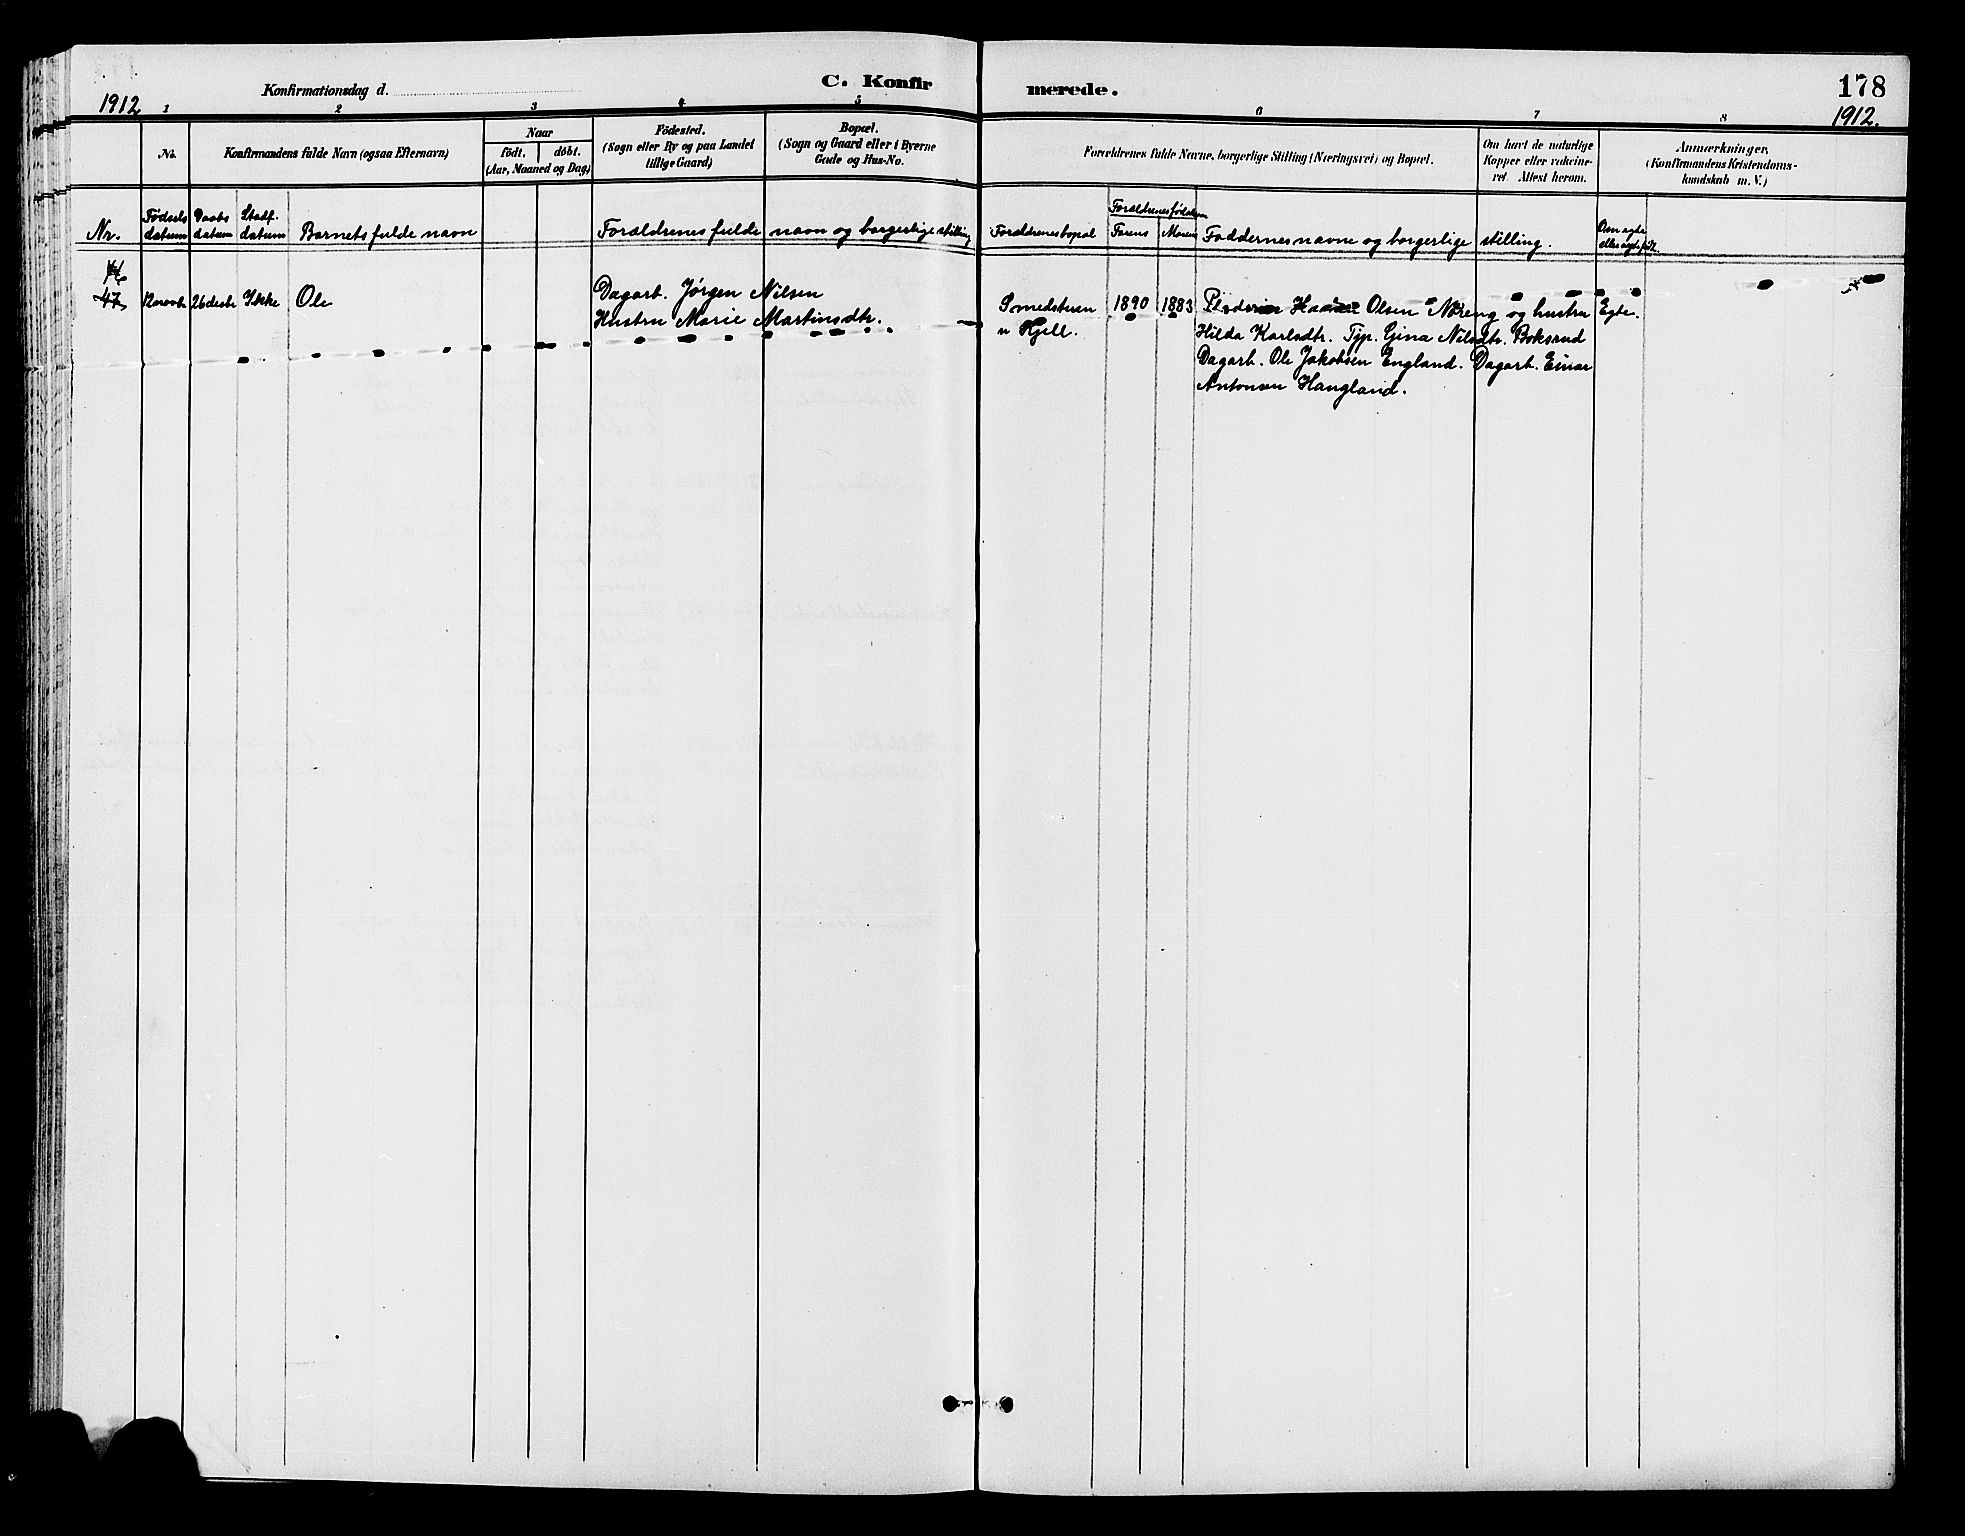 178
1912
Konfirmationsdag d.
C. Konfir
merede.
1912.
1 2 3 4 5 6 7 8
No.
Konfirmandens fulde Navn (ogsaa Efternavn)
Naar
født, døbt.
(Aar, Maaned og Dag)
Födested.
(Sogn eller By og paa Landet
tillige Gaard)
Bopæl.
(Sogn og Gaard eller i Byerne
Gade og Hus-No.
Forældrenes fulde Navne, borgerlige Stilling (Næringsvei) og Bopæl.
Om havt de naturlige
Kopper eller vakcine-
ret. Attest herom.
Anmærkninger,
(Konfirmandens Kristendoms-
kundskab m. V.)
Nr.
Fødsels
datum
Daabs
datum
Stadf.
datum
Barnets fulde navn
Forældrenes fulde navn og borgerlige stilling
Forældrenes bopæl
Forældrenes fødselsaar
Farens
Morens
Faddernes navne og borgerlige stilling.
Om ægte
eller uægte født.
47
12 novbr
26 decbr
Ikke
Ole
Dagarb. Jørgen Nilsen
Hustru Marie Martinsdtr.
Smedstuen
u Hjell.
1890
1883
Olsen Noreng og hustru
Hilda Karlsdtr. Tjp. Gina Nilsdtr. Boksrud
Dagarb. Ole Jakobsen England. Dagarb. Einar
Antonsen Haugland.
Egte.